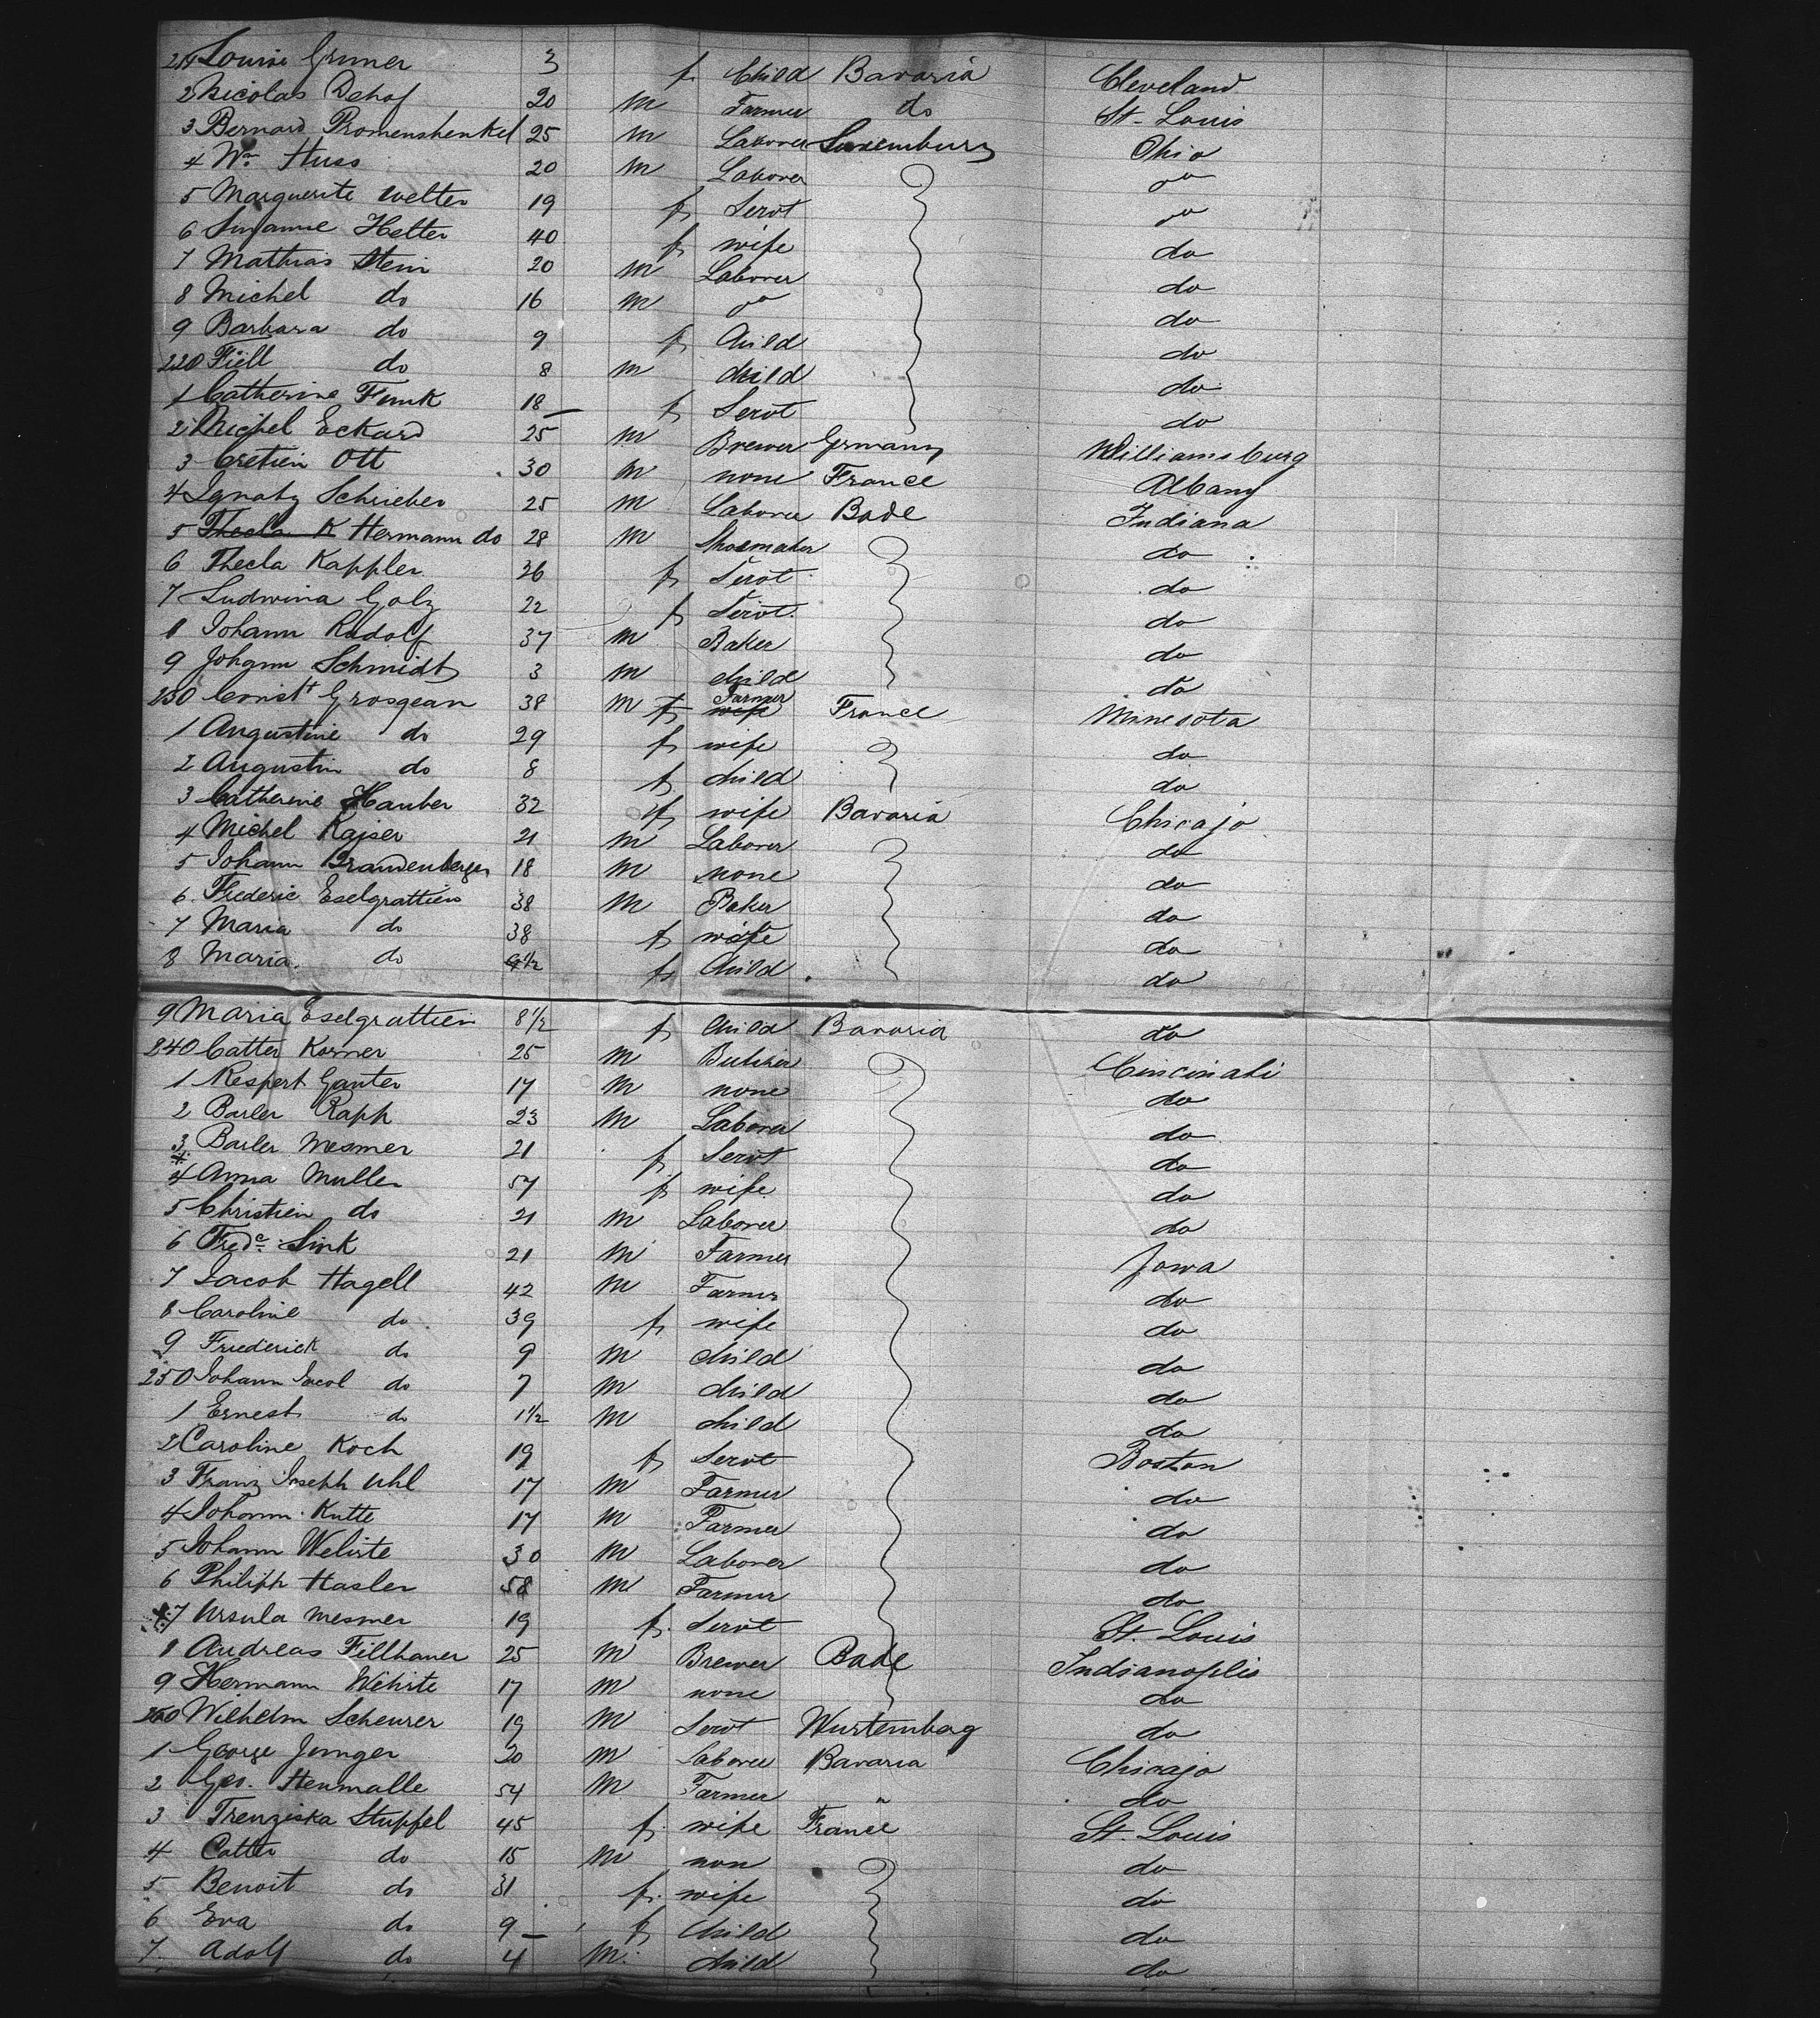 211 Louise Gruner 3 f Child Bavaria Cleveland
2 Nicolas Dehof 20 m Farmer do St. Louis
3 Bernard Promenshenkel 25 m Laborer Luxemburg Ohio
4 Wm Huss 20 m Laborer do
5 Marguerite Welter 19 f Servt do
6 Susanne Helter 40 f wife do
7 Mathias Stein 20 m Laborer do
8 Michel do 16 m do do
9 Barbara do 9 f Child do
220 do 8 m child do
1 Catherine Funk 18 f Servt do
2 Michel Eckard 25 m Brewer Grmany Williamsburg
3 Cretien Ott 30 m none France Albany
4 Ignatz Schrieber 25 m Laborer Bade Indiana
5 Thecla K Hermann do 28 m Shoemaker do
6 Thecla Kappler 36 f Servt do
7 Ludwina Golz 22 f Servt. do
8 Johann Rudolf 37 m Baker do
9 Johann Schmidt 3 m child do
230 Const Grosgean 38 m f Farmer wife France Minesota
1 Augustine do 29 f wife do
2 Augustin do 8 f child do
3 Catherine Hauber 32 f wife Bavaria Chicajo
4 Michel Kaiser 21 m Laborer do
5 Johann Brandenberger 18 m none do
6 Frederic Eselgrattien 38 m Baker do
7 Maria do 38 f wife do
8 Maria. do 9 1/2 f Child do
9 Maria Eselgrattien 8 1/2 f Child Bavaria do
240 Catter Korner 25 m Butcher Cincinati
1 Respert Ganter 17 m none do
2 Barler Rapp 23 m Laborer do
3 Barler Mesmer 21 f Servt do
4 Anna Muller 57 f wife do
5 Christien do 21 m Laborer do
6 Fredc Link 21 m Farmer Jowa
7 Jacob Hagell 42 m Farmer do
8 Caroline do 39 f wife do
9 Friederick do 9 m child do
250 Johann Jacol do 7 m child do
1 Ernest do 1 1/2 m child do
2 Caroline Koch 19 f Servt Boston
3 Franz Joseph Uhl 17 m Farmer do
4 Johann Kutte 17 m Farmer do
5 Johann Wehrte 30 m Laborer do
6 Philipp Hasler 58 m Farmer do
7 Ursula Mesmer 19 f. Servt St. Louis
8 Andreas Fillhauer 25 m Brewer Bade Indianoplis
9 Hermann Wehrte 17 m none do
260 Wilhelm Scheurer 19 m Servt Wurtemberg do
1 George Junger 20 m Laborer Bavaria Chicajo
2 Geo. Heumalle 54 m Farmer " do
3 Frenziska Stuppel 45 f. wife France St. Louis
4 Catter do 15 m non do
5 Benoit do 31 f. wife do
6 Eva do 9 f child do
7. Adolf do 4 m. child do